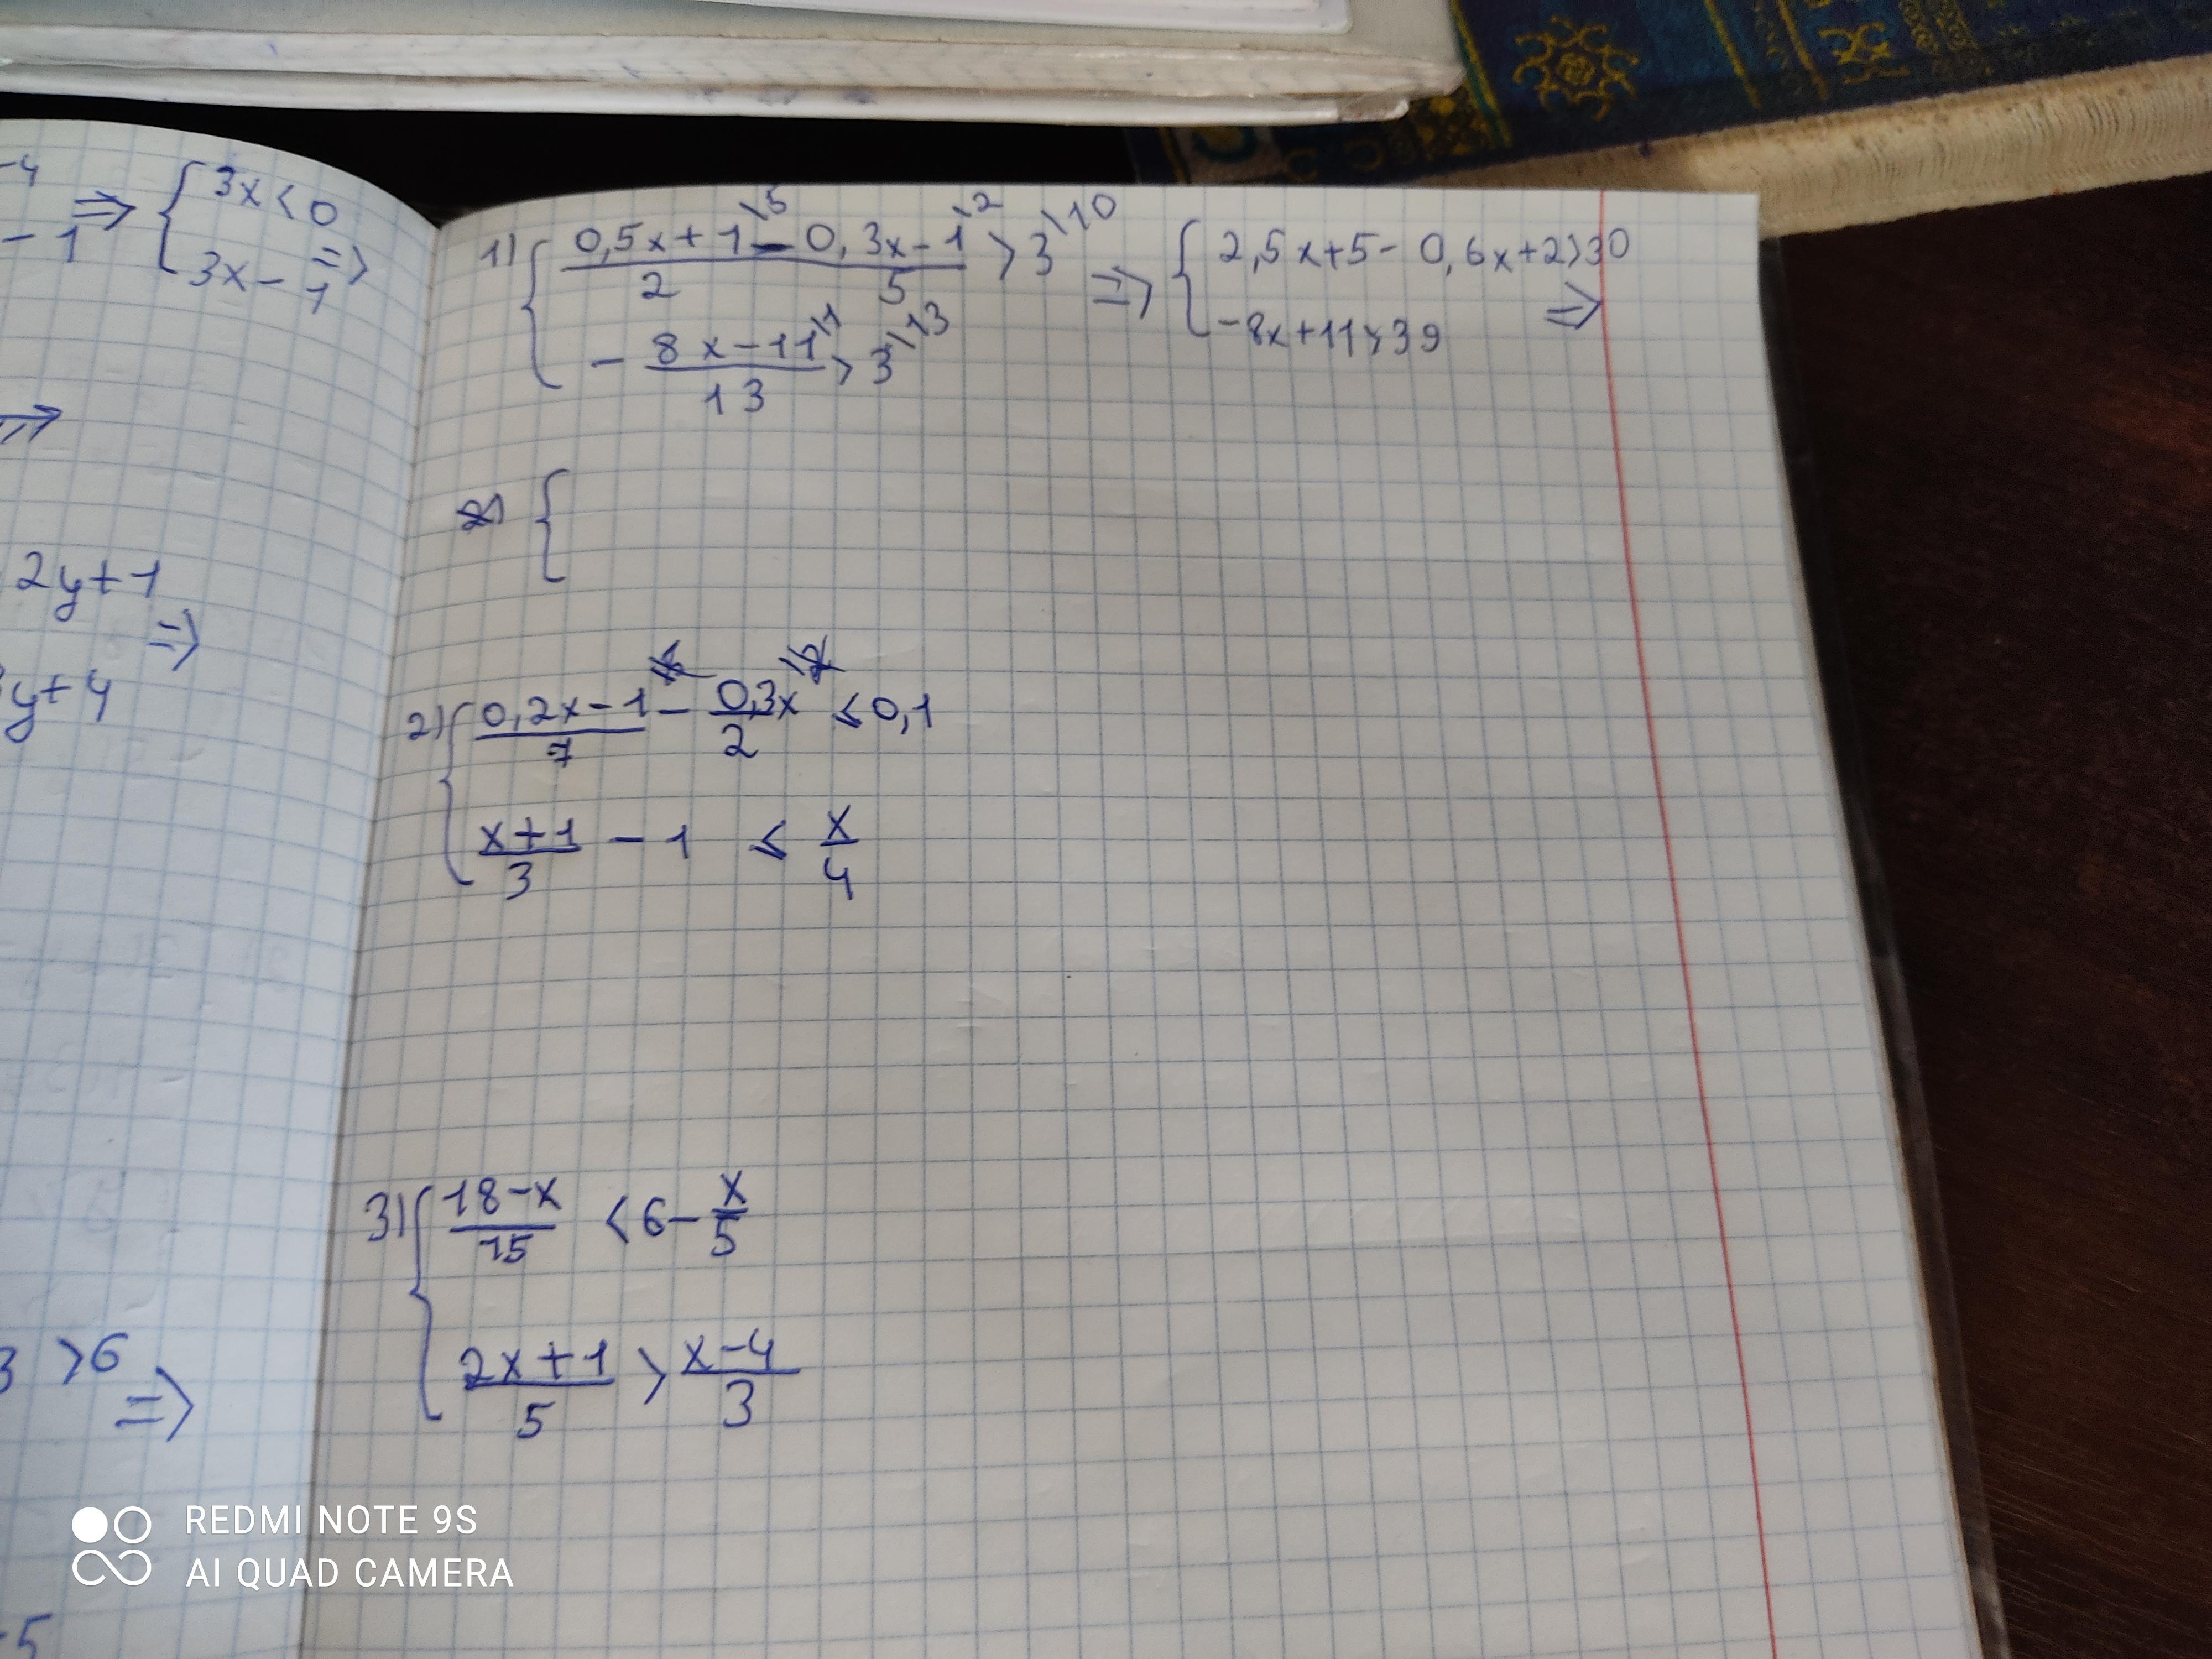 -4
-1 ⇒ { 3x < 0
3x - 1 ⇒
⇒
2y+1
⇒
y+4
3 > 6
⇒
-5
1) { (0,5x+1\5)/2 - (0,3x-1\2)/5 > 3\10 ⇒ { 2,5x+5- 0,6x+2>30
- (8x-11\1)/13 > 3\13 -8x+11>39 ⇒
{
2) { (0,2x-1)/7 - 0,3x/2 ≤ 0,1
(x+1)/3 - 1 ≤ x/4
3) { (18-x)/15 < 6 - x/5
(2x+1)/5 > (x-4)/3
REDMI NOTE 9S
AI QUAD CAMERA